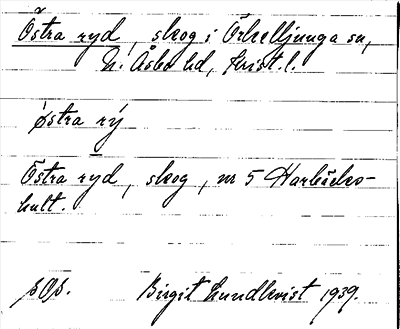 Östra ryd, skog i Örkelljunga sn,
N. Åsbo hd, Krist. l.
østra rý
Östra ryd, skog, nr 5 Harbäcks-
hult.
sOs. Birgit Lundkvist 1939.